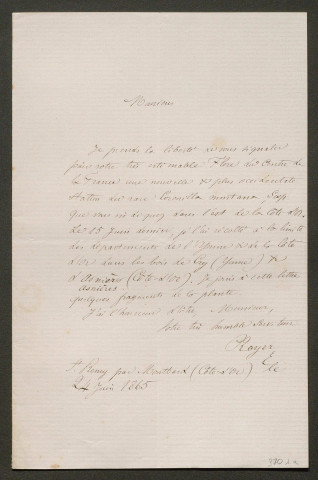 Monsieur
Je prends la liberté de vous signaler
pour votre très estimable Flore du Centre de
la France une nouvelle & plus occidentale
station du rare Coronilla montana, Scop.
que vous ne que dans l'est de la Côte-d'Or.
Le 15 Juin dernier, je l'ai récolté à la limite
des départements de l'Yonne & de la Côte
d'Or dans les bois de Cry (Yonne) &
d'Asnières (Côte-d'Or). Je joins à cette lettre
asnières
quelques fragments de la plante.
J'ai l'honneur d'être, Monsieur,
Votre très humble Serviteur
Royer
St Remy par Montbard (Côte-d'Or) le
24 Juin 1865